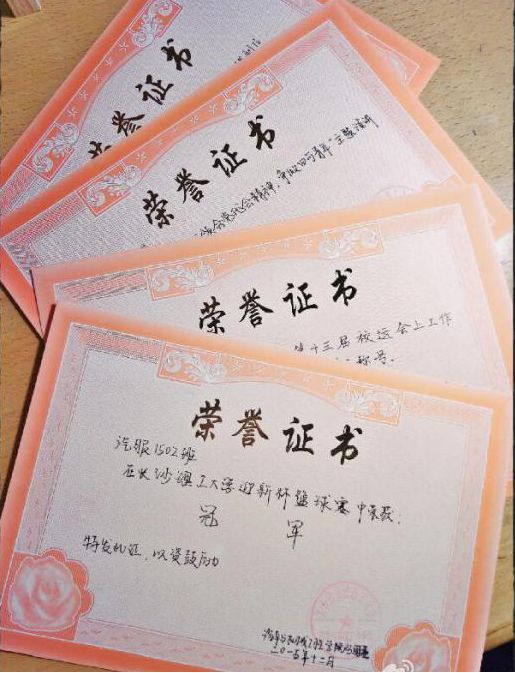 荣誉证书
荣誉证书
领会党代会精神,争做四可青年"主题演讲
荣誉证书
第十三届校运会上工作
称号.
荣誉证书
汽服1502班
在长沙理工大学迎新杯篮球赛中荣获:
冠军
特发此证,以资鼓励
汽车与机械工程学院
二〇一五年十二月